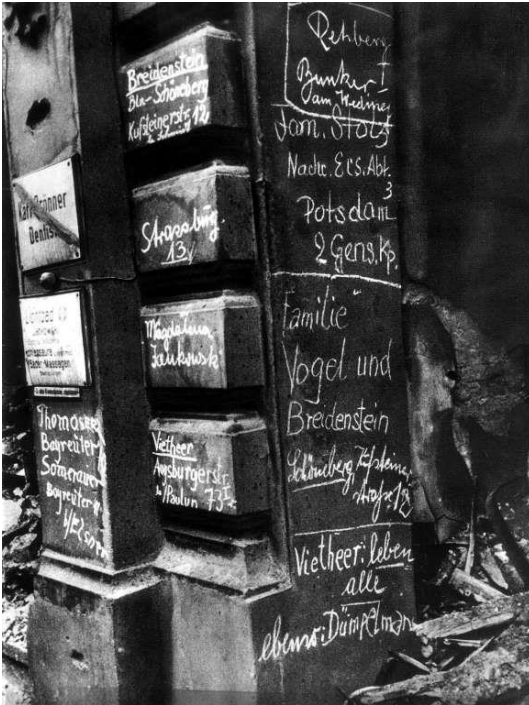 Karl Brönner
Dentist
Lichtbad
Bäder Massagen
Thomasee
Bayreuter
Sömenauer
Bayreuter
Breidenstein
Bln-Schöneberg
Kufsteinerstr. 12
Strassburg.
13
Magdalena
Jankowski
Vietheer
Augsburgerstr.
73 I
Rehberg
Bunker I
Fam. Stolz
Nachr. Ers. Abt.
3
Potsdam
2 Gens. Kp.
Familie
Vogel und
Breidenstein
Schöneberg Kufsteiner
straße 12
Vietheer: leben
alle
ebenso: Dümpelmann